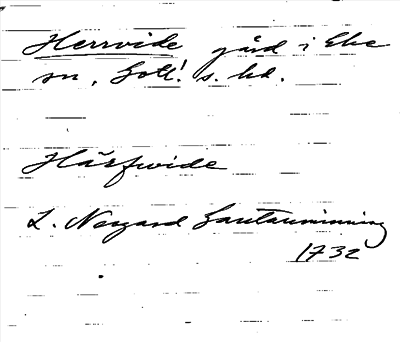 Herrvide gård i Eke
sn, Gotl. s. hd.
Härfwide
L. Norgard Lantmätning
1732